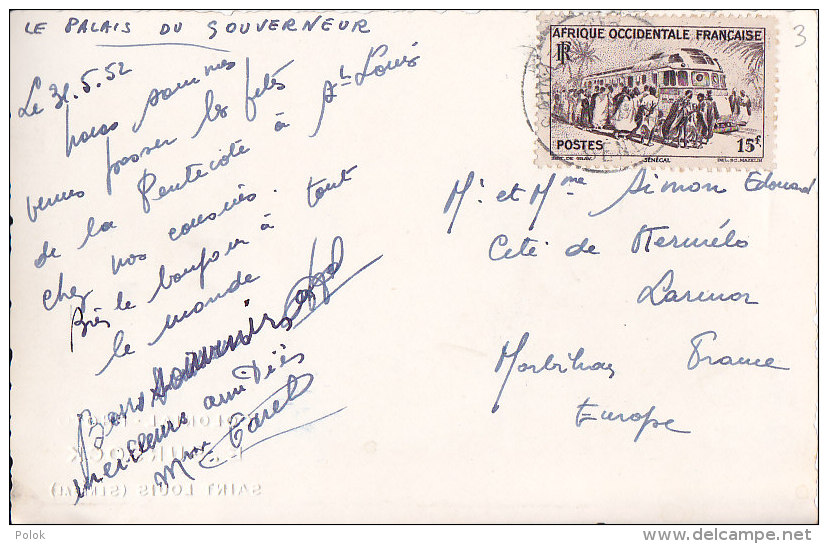 LE PALAIS DU GOUVERNEUR
Le 31.5.52
nous sommes
venus passer les fetes
de la Pentecôte à St Louis
chez nos cousines.
Bien le bonjour à tout
le monde
Bons Souvenirs
meilleures amitiés
Mme
3
AFRIQUE OCCIDENTALE FRANÇAISE
RF
POSTES
15f
SÉNÉGAL
Mr et Mme Simon Edouard
Cité de Kermélo
Larmor
Morbihan France
Europe
SAINT LOUIS (SÉNÉGAL)
Polok
delcampe.net